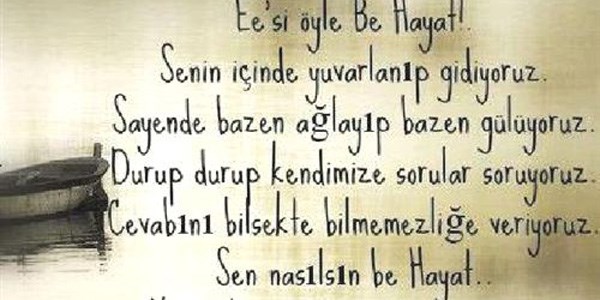 Ee'si öyle Be Hayat!.
Senin içinde yuvarlanıp gidiyoruz.
Sayende bazen ağlayıp bazen gülüyoruz.
Durup durup kendimize sorular soruyoruz.
Cevabını bilsekte bilmemezliğe veriyoruz.
Sen nasılsın be Hayat..